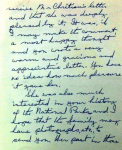 receive Mr. Chittenden's letter
and that she was deeply
pleased by it. It was,
I may make the comment,
a most happy thought
and you wrote a very
warm and gracious and
appreciative letter. You have
no idea how much pleasure
it gave her.
She was also much
interested in your history
of the National Parks and
so that the family may
have photographs, to
send you her part in this